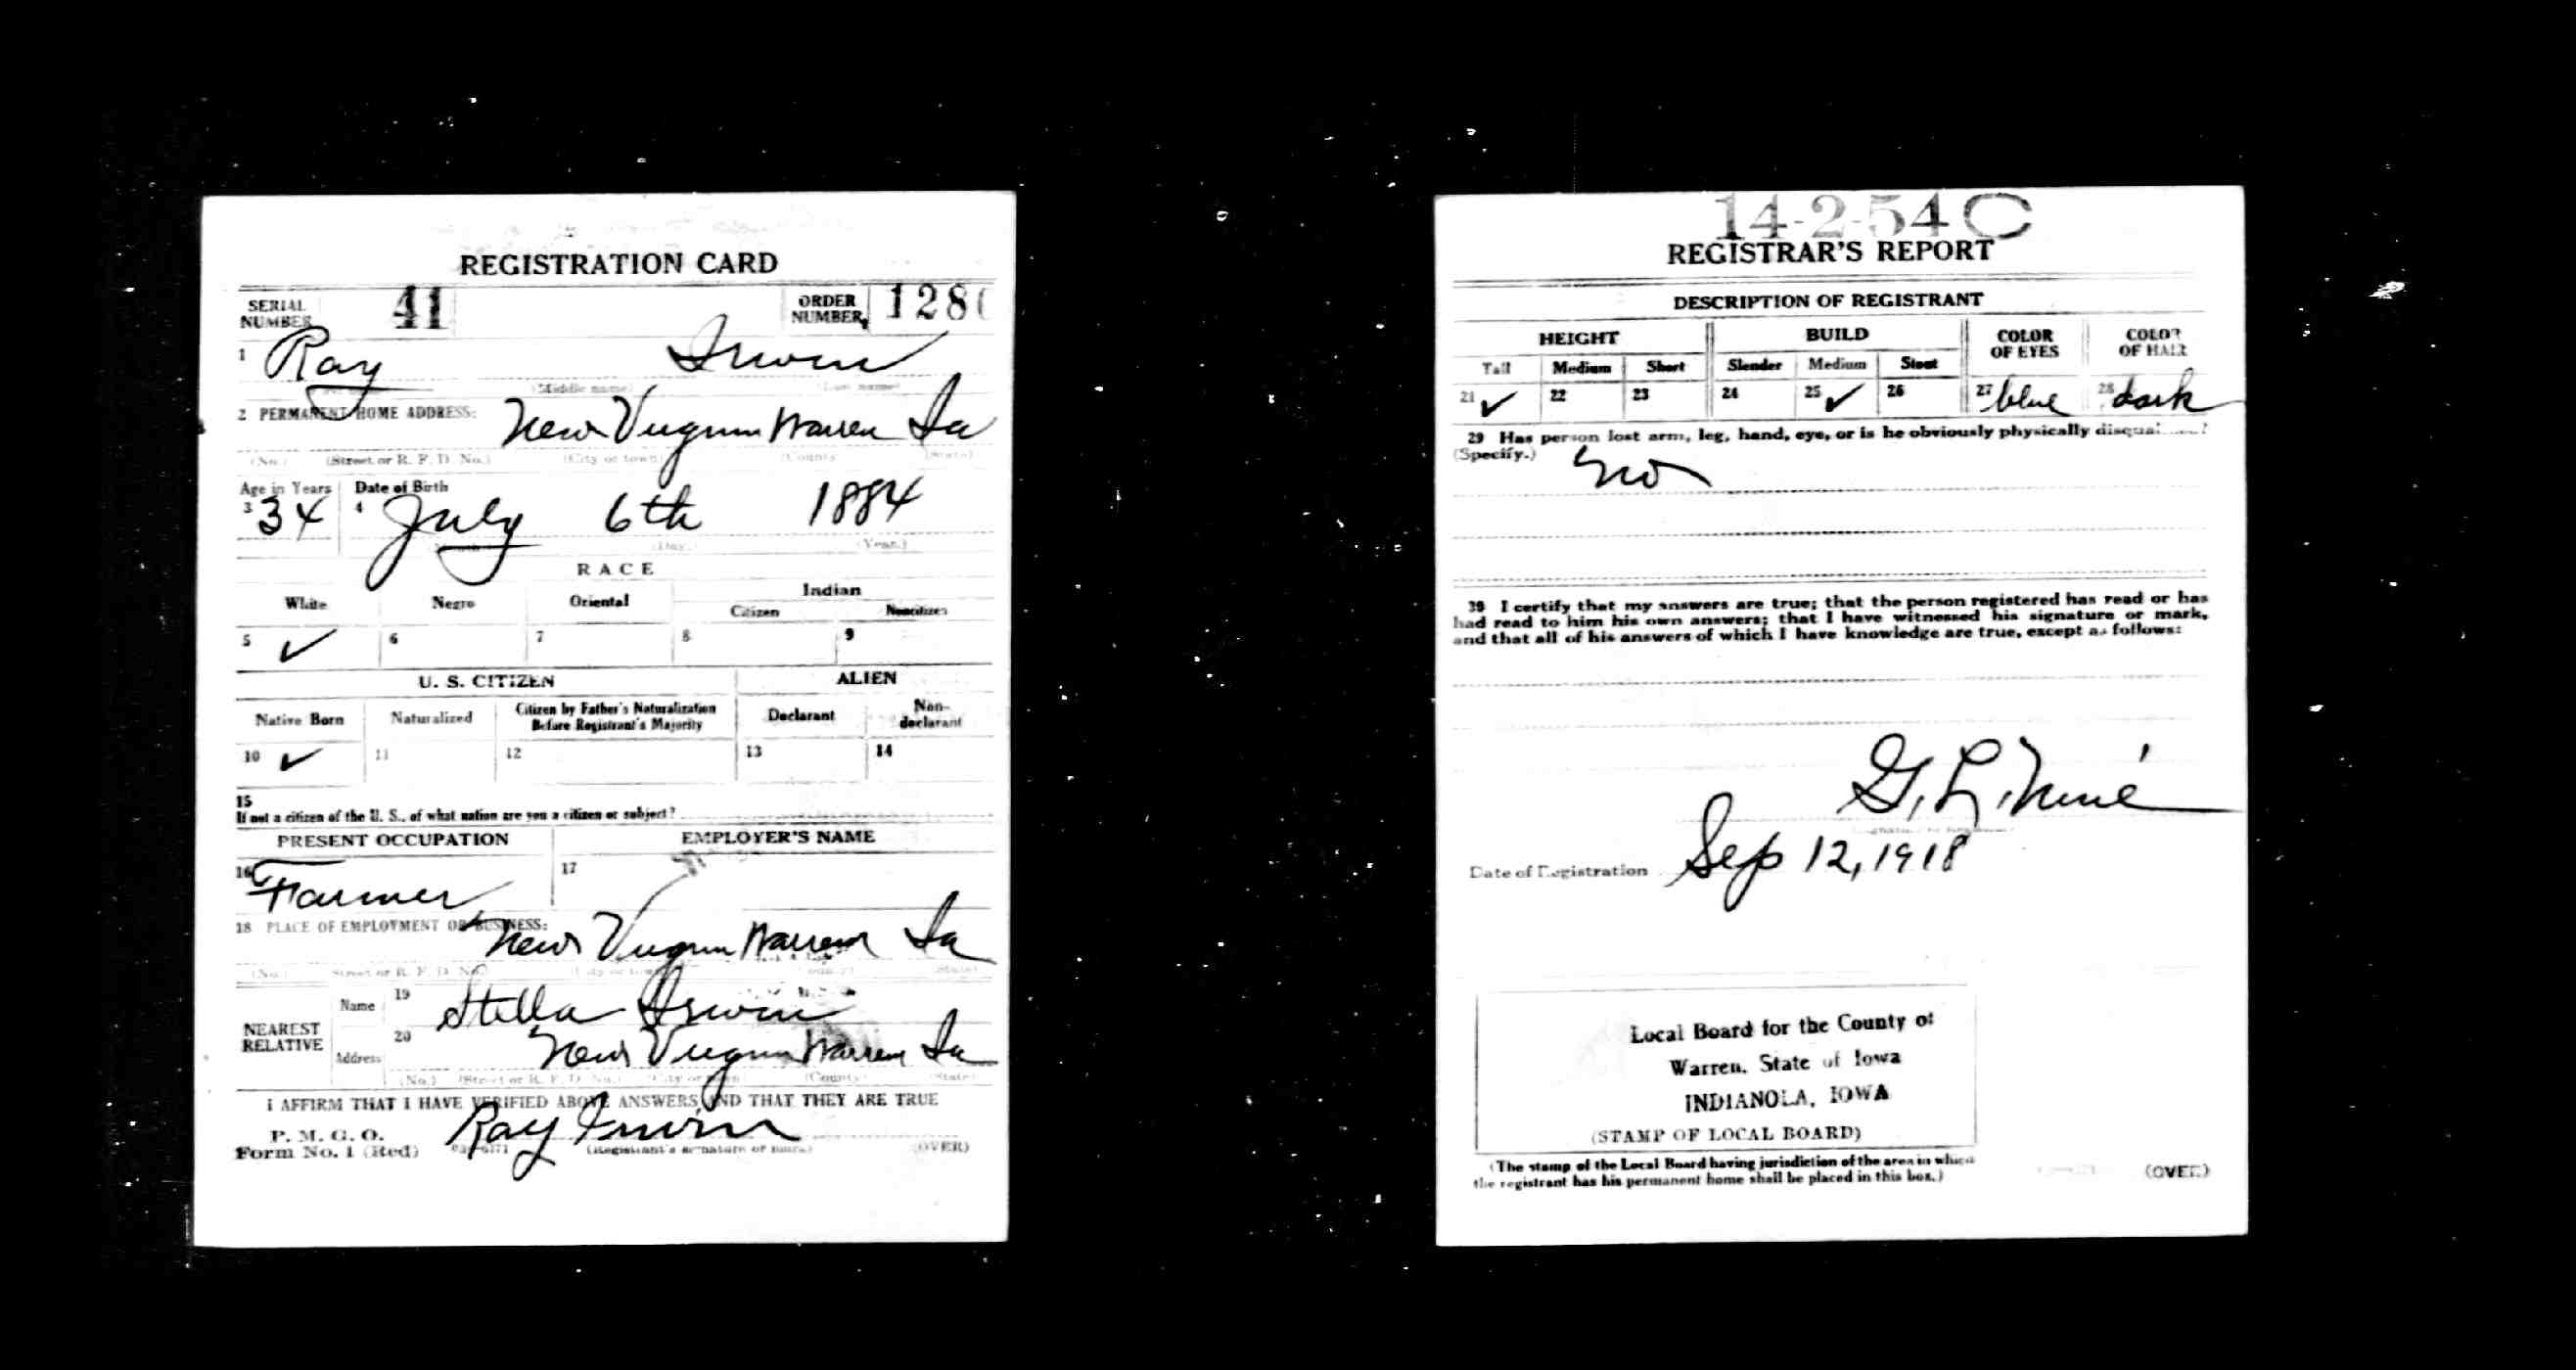 REGISTRATION CARD
SERIAL NUMBER 41 ORDER NUMBER 128
1 Ray Irwin
(Middle name) (Last name)
2 PERMANENT HOME ADDRESS: New Virginia Warren Ia
(No.) (Street or R. F. D. No.) (City or town) (County) (State)
Age in Years Date of Birth
3 34 4 July 6th 1884
(Day.) (Year.)
RACE
White Negro Oriental Indian
Citizen Noncitizen
5 ✓ 6 7 8 9
U. S. CITIZEN ALIEN
Native Born Naturalized Citizen by Father's Naturalization Before Registrant's Majority Declarant Non-declarant
10 ✓ 11 12 13 14
15
If not a citizen of the U. S., of what nation are you a citizen or subject?
PRESENT OCCUPATION EMPLOYER'S NAME
16 Farmer 17
18 PLACE OF EMPLOYMENT OR BUSINESS: New Virginia Warren Ia
(No.) (Street or R. F. D. No.) (City or town) (County) (State)
NEAREST RELATIVE
Name 19 Stella Irwin
Address 20 New Virginia Warren Ia
(No.) (Street or R. F. D. No.) (City or town) (County) (State)
I AFFIRM THAT I HAVE VERIFIED ABOVE ANSWERS AND THAT THEY ARE TRUE
P. M. G. O.
Form No. 1 (Red) Ray Irwin
(Registrant's signature or mark) (OVER)
14-2-54 C
REGISTRAR'S REPORT
DESCRIPTION OF REGISTRANT
HEIGHT BUILD COLOR OF EYES COLOR OF HAIR
Tall Medium Short Slender Medium Stout
21 ✓ 22 23 24 25 ✓ 26 27 blue 28 dark
29 Has person lost arm, leg, hand, eye, or is he obviously physically
(Specify.) No
30 I certify that my answers are true; that the person registered has read or has
had read to him his own answers; that I have witnessed his signature or mark,
and that all of his answers of which I have knowledge are true, except as follows:
G. L.
Date of Registration Sep 12, 1918
Local Board for the County of
Warren, State of Iowa
INDIANOLA, IOWA
(STAMP OF LOCAL BOARD)
(The stamp of the Local Board having jurisdiction of the area in which
the registrant has his permanent home shall be placed in this box.)
(OVER)